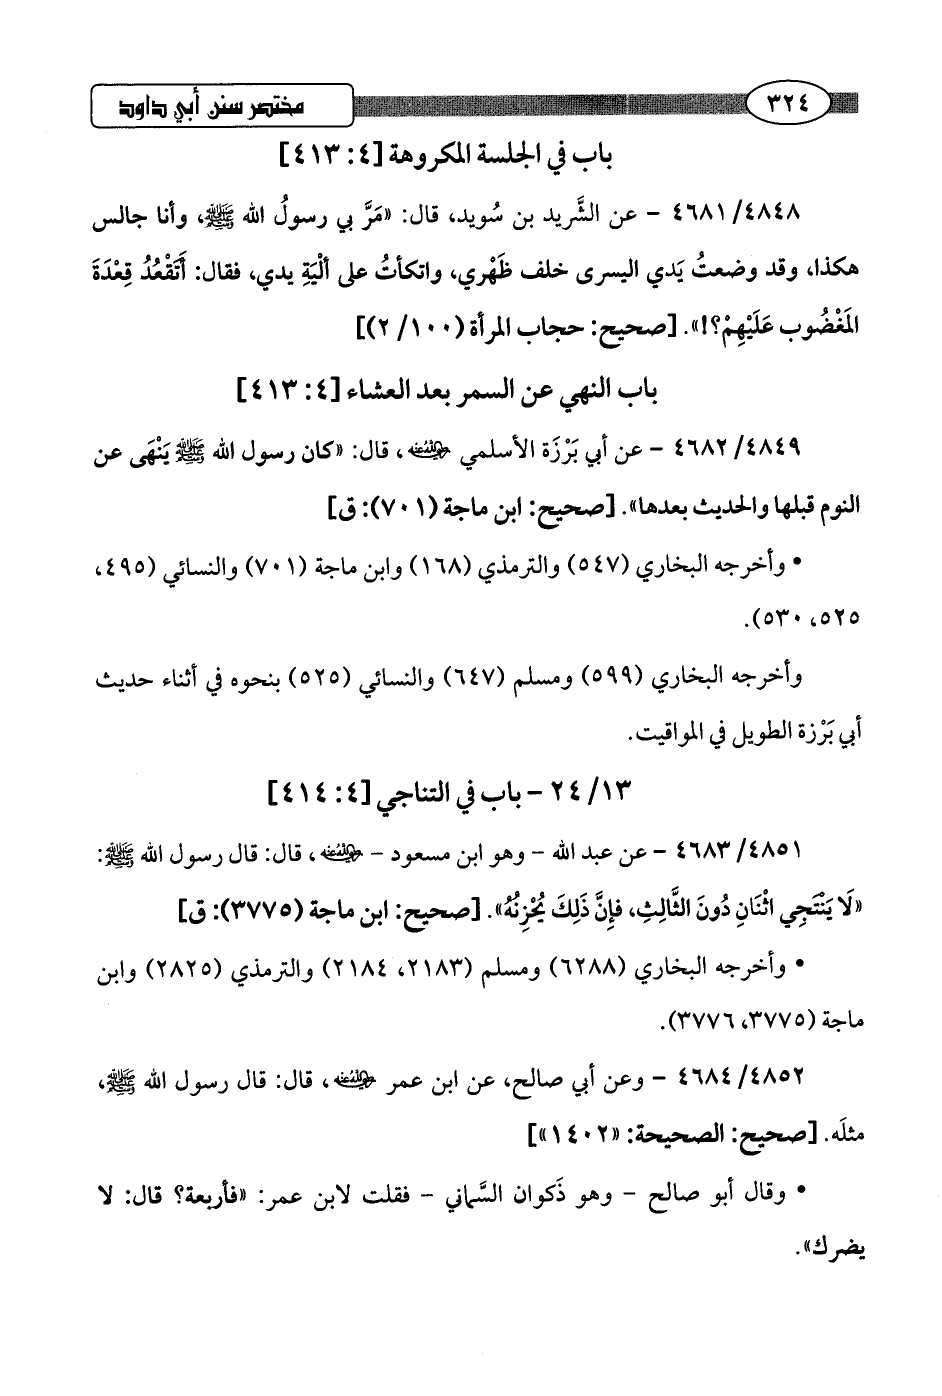 ٣٢٤ مختصر سنن أبي داود
باب في الجلسة المكروهة [٤: ٤١٣]
٤٦٨١/٤٨٤٨ - عن الشَّريد بن سُويد، قال: «مَرَّ بي رسولُ الله ﷺ، وأنا جالس
هكذا، وقد وضعتُ يَدي اليسرى خلف ظَهْري، واتكأتُ على أَلْيَةِ يدي، فقال: أَتَقْعُدُ قِعْدَةَ
المَغْضُوب عَلَيْهِمْ؟!». [صحيح: حجاب المرأة (١٠٠/ ٢)]
باب النهي عن السمر بعد العشاء [٤: ٤١٣]
٤٦٨٢/٤٨٤٩ - عن أبي بَرْزَة الأسلمي رضي الله عنه، قال: «كان رسول الله ﷺ يَنْهَى عن
النوم قبلها والحديث بعدها». [صحيح: ابن ماجة (٧٠١): ق]
• وأخرجه البخاري (٥٤٧) والترمذي (١٦٨) وابن ماجة (٧٠١) والنسائي (٤٩٥،
٥٢٥، ٥٣٠).
وأخرجه البخاري (٥٩٩) ومسلم (٦٤٧) والنسائي (٥٢٥) بنحوه في أثناء حديث
أبي بَرْزة الطويل في المواقيت.
٢٤/١٣ - باب في التناجي [٤: ٤١٤]
٤٦٨٣/٤٨٥١ - عن عبد الله - وهو ابن مسعود - رضي الله عنه، قال: قال رسول الله ﷺ:
«لَا يَنْتَجِي اثْنَانِ دُونَ الثَّالِثِ، فإنَّ ذَلِكَ يُحْزِنُهُ». [صحيح: ابن ماجة (٣٧٧٥): ق]
• وأخرجه البخاري (٦٢٨٨) ومسلم (٢١٨٣، ٢١٨٤) والترمذي (٢٨٢٥) وابن
ماجة (٣٧٧٥، ٣٧٧٦).
٤٦٨٤/٤٨٥٢ - وعن أبي صالح، عن ابن عمر رضي الله عنه، قال: قال رسول الله ﷺ،
مثلَه. [صحيح: الصحيحة: «١٤٠٢»]
• وقال أبو صالح - وهو ذَكوان السَّماني - فقلت لابن عمر: «فأربعة؟ قال: لا
يضرك».